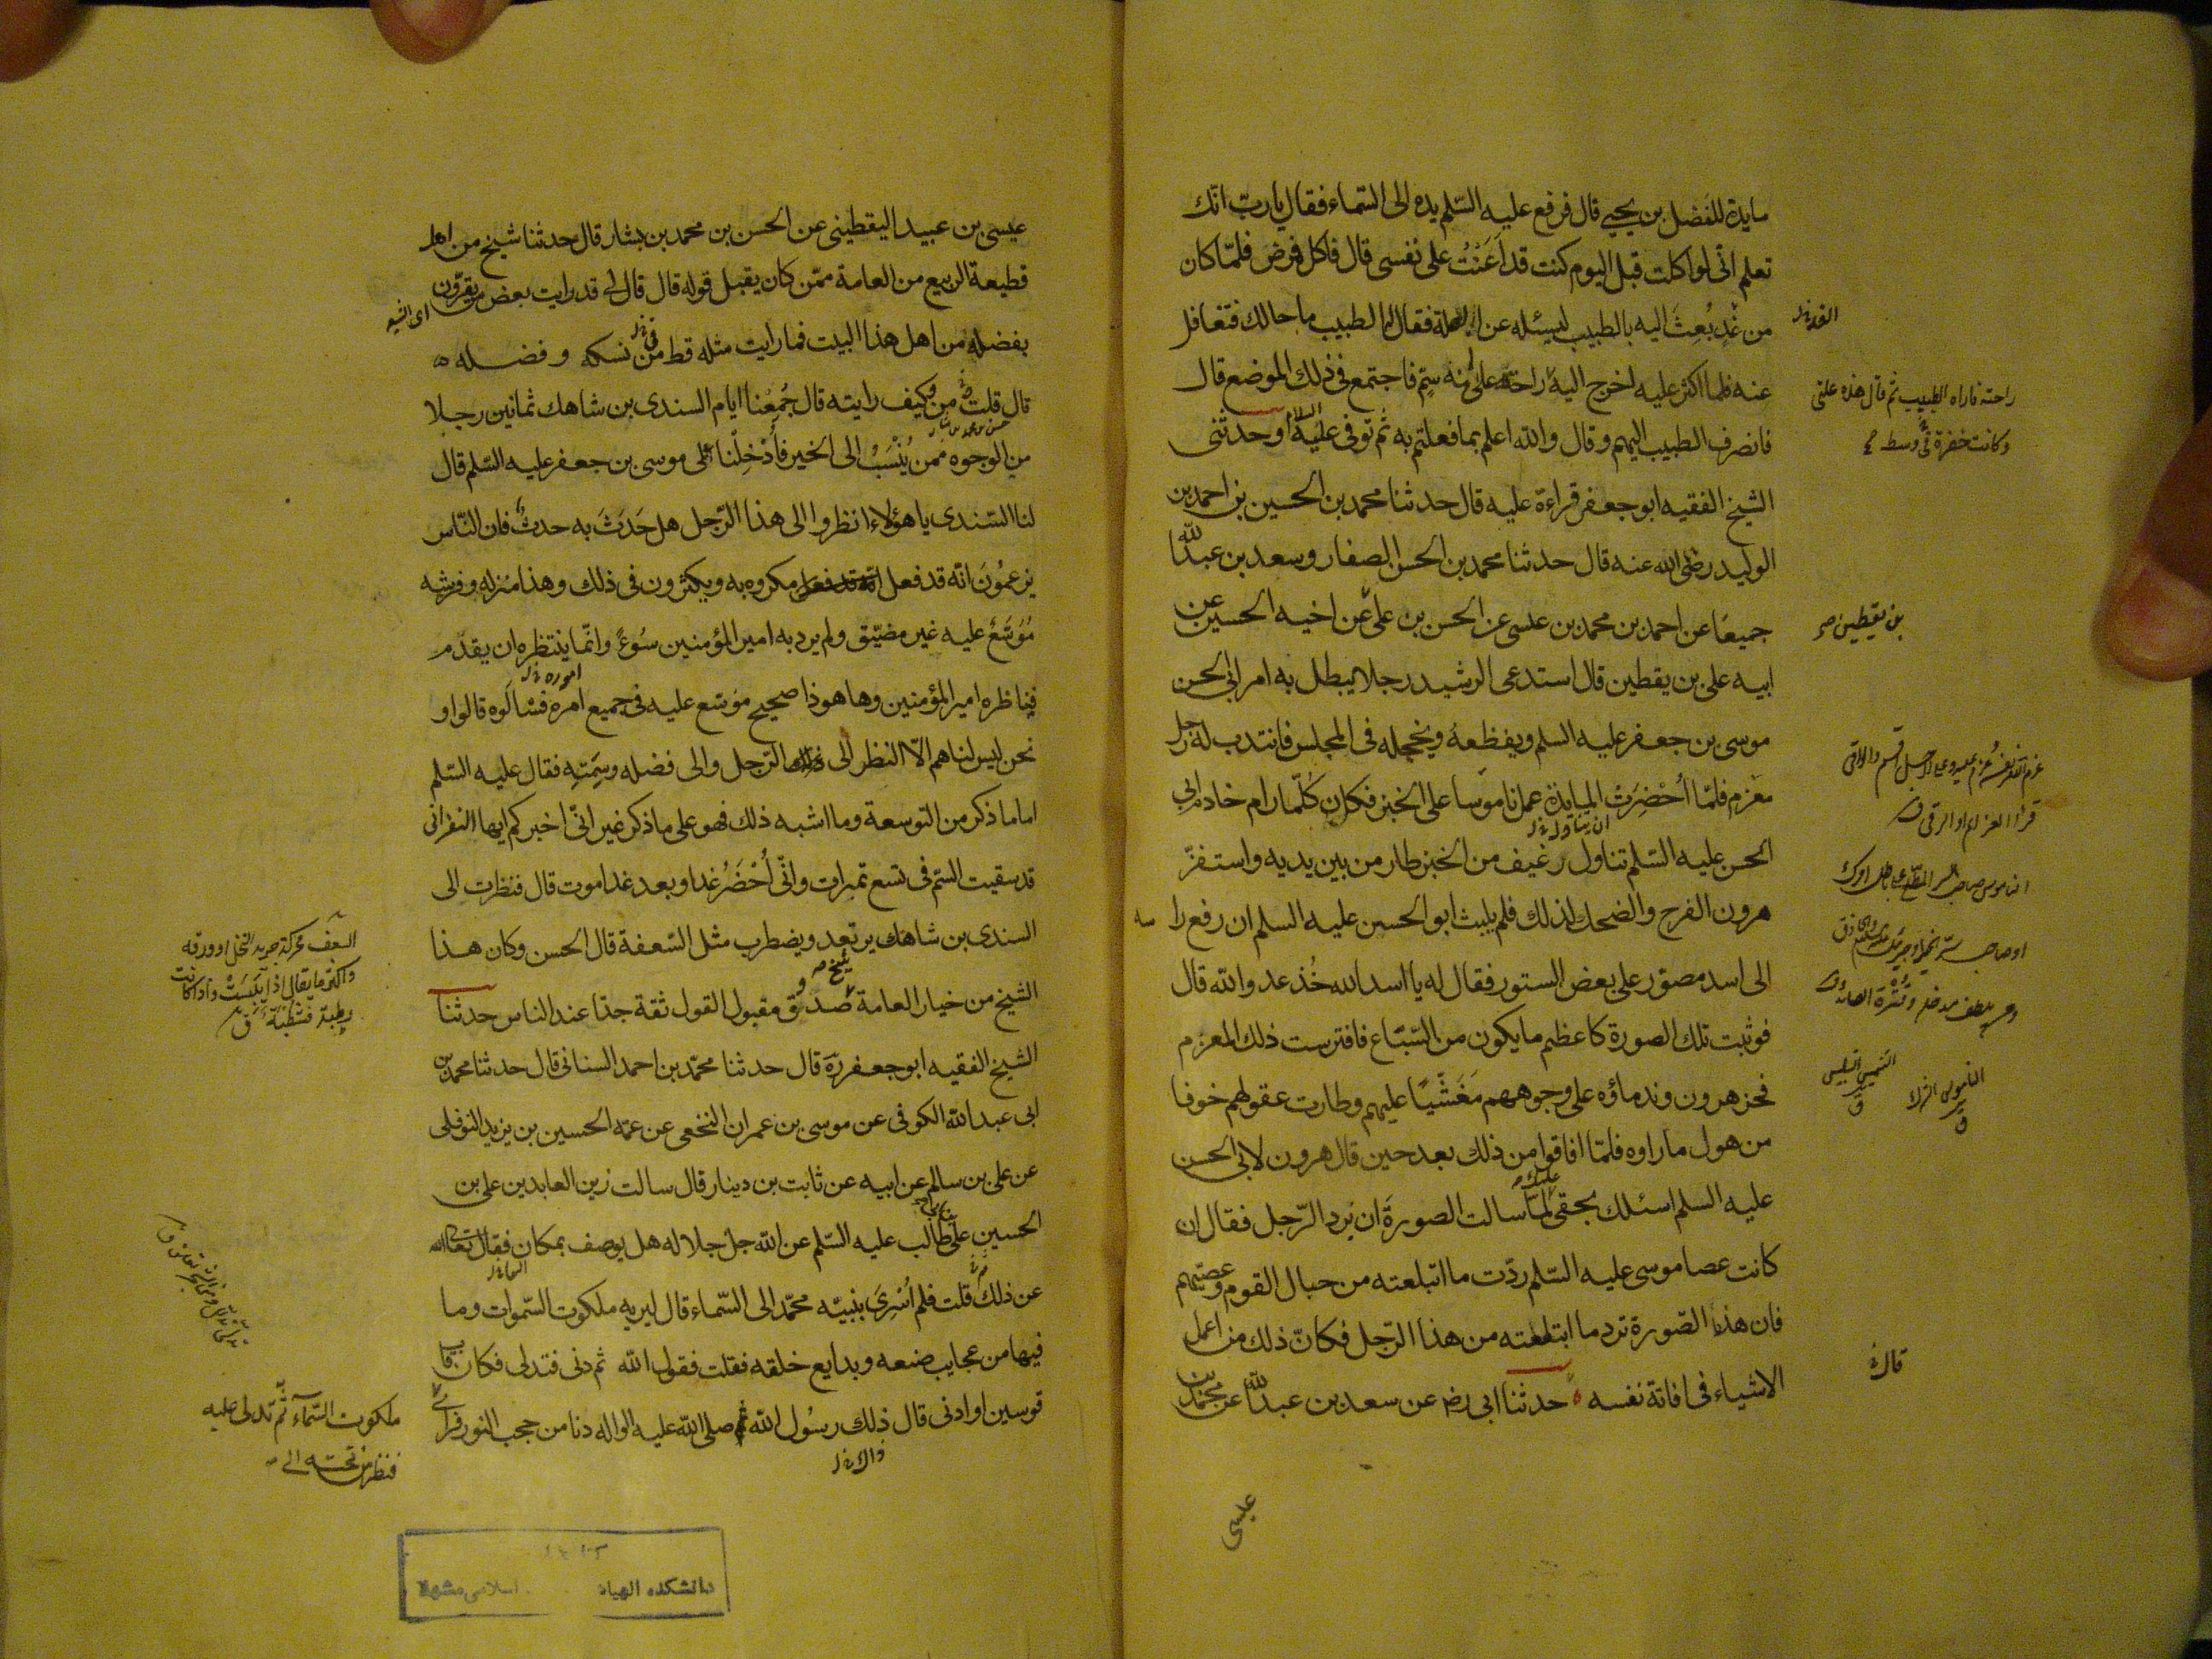 مايدة للفضل بن يحيى قال فرفع عليه السّلم يده الى السّماء فقال يا ربّ انّك
تعلم انّى لو اكلت قبل اليوم كنت قد اَعَنْتُ على نفسى قال فاكل فمرض فلمّا كان
من غدٍ بُعِثَ اليه بالطبيب ليسئله عن العلة فقال له الطبيب ما حالك فتغافل
عنه فلما اكثر عليه اخرج اليه راحته
فاجتمع فى ذلك الموضع قال
فانصرف الطبيب اليهم وقال والله اعلم بما فعلتم به ثم توفى عليه السلام وحدثنى
الشيخ الفقيه ابو جعفر قراءة عليه قال حدثنا محمد بن الحسين بن احمد بن
الوليد رضى الله عنه قال حدثنا محمد بن الحسن الصفار وسعد بن عبد الله
جميعًا عن احمد بن محمد بن عيسى عن الحسن بن على عن اخيه الحسين عن
ابيه على بن يقطين قال استدعى الرشيد رجلا يبطل به امر ابى الحسن
موسى بن جعفر عليه السلم ويفظعه ويخجله فى المجلس فانتدب له رجل
معزم فلمّا اُحْضِرَتْ المايدة عمل ناموسا على الخبز فكان كُلّما رام خادم ابى
الحسن عليه السّلم تناول رغيف من الخبز طار من بين يديه واستفزّ
هرون الفرح والضحك لذلك فلم يلبث ابو الحسين عليه السلم ان رفع را سه
الى اسد مصوّر على بعض الستور فقال له يا اسد الله خُذ عدو الله قال
فوثبت تلك الصورة كاعظم ما يكون من السّباع فافترست ذلك المعزم
فخر هرون وندماؤه على وجوههم مَغَشّيًا عليهم وطارت عقولهم خوفا
من هول ما راوه فلمّا افاقوا من ذلك بعد حين قال هرون لابى الحسن
عليه السلم اسئلك بحقى عليك لمّا سالت الصورة ان يرد الرّجل فقال ان
كانت عصا موسى عليه السّلم ردّت ما ابتلعته من حبال القوم وعصيّهم
فان هذه الصّورة ترد ما ابتلعته من هذا الرّجل فكان ذلك من اعمل
الاشياء فى افاتة نفسه حدثنا ابى رض عن سعد بن عبد الله عن محمد بن
عيسى
راحته فاراه الطبيب ثم قال هذه علتى
وكانت خضرة فى وسط
بن يقطين صح
قال
عيسى بن عبيد اليقطينى عن الحسن بن محمد بن بشار قال حدثنا شيخ من اهل
قطيعة الربيع من العامة ممّن كان يقبل قوله قال قال لى قد رايت بعض من يقرّون
بفضله من اهل هذا البيت فما رايت مثله قط فى نسكه وفضله
قال قلت من وكيف رايته قال جُمِعْنا ايام السندى بن شاهك ثمانين رجلا
من الوجوه ممن يُنْسَبُ الى الخير فأُدْخِلْنا على موسى بن جعفر عليه السّلم قال
لنا السّندى يا هؤلاء انظروا الى هذا الرّجل هل حَدَثَ به حدثٌ فان النّاس
يزعمُونَ انّه قد فعل مكروه به ويكثرون فى ذلك وهذا منزله وفرشه
مُوَسَّعٌ عليه غير مضيّق ولم يرد به امير المؤمنين سُوءً وانّما ينتظره ان يقدم
فيناظره امير المؤمنين وها هو ذا صحيح موسّع عليه فى جميع امره فسالوه قالوا و
نحن ليس لنا همّ الّا النظر الى الرّجل والى فضله وسَمته فقال عليه السّلم
اما ما ذكر من التوسعة وما اشبه ذلك فهو على ما ذكر غير انّى اخبركم ايها النفر انى
قد سقيت السّم فى تسع تمرات وانّى اُخْضَرُ غدا وبعد غد اموت قال فنظرت الى
السندى بن شاهك يرتعد ويضطرب مثل السّعفة قال الحسن وكان هذا
الشيخ من خيار العامة شيخ صدوق مقبول القول ثقة جدّا عند الناس حدثنا
الشيخ الفقيه ابو جعفر ره قال حدثنا محمّد بن احمد السنانى قال حدثنا محمد بن
ابى عبد الله الكوفى عن موسى بن عمران النخعى عن عمّه الحسين بن يزيد النوفلى
عن على بن سالم عن ابيه عن ثابت بن دينار قال سالت زين العابدين على بن
الحسين بن على بن ابى طالب عليه السّلم عن الله جل جلاله هل يوصف بمكان فقال تعالى الله
عن ذلك قلت فلم اُسْرِىَ بنبيّه محمّد الى السّماء قال ليريه ملكوت السّموات وما
فيها من عجايب صنعه وبدايع خلقه فقلت فقول الله ثم دنى فتدلى فكان قاب
قوسين او ادنى قال ذلك رسُول الله صلى الله عليه واله دنا من حجب النور فراى
السعف محركة جريد النخل او ورقه
واكثر ما يقال اذا يَبِسَتْ واذا كانت
رطبة فشَطْبَة ق
ملكوت السّمآء ثُم تدلى عليه
فنظر من تحته الى
دانشكده الهيات
اسلامى مشهد